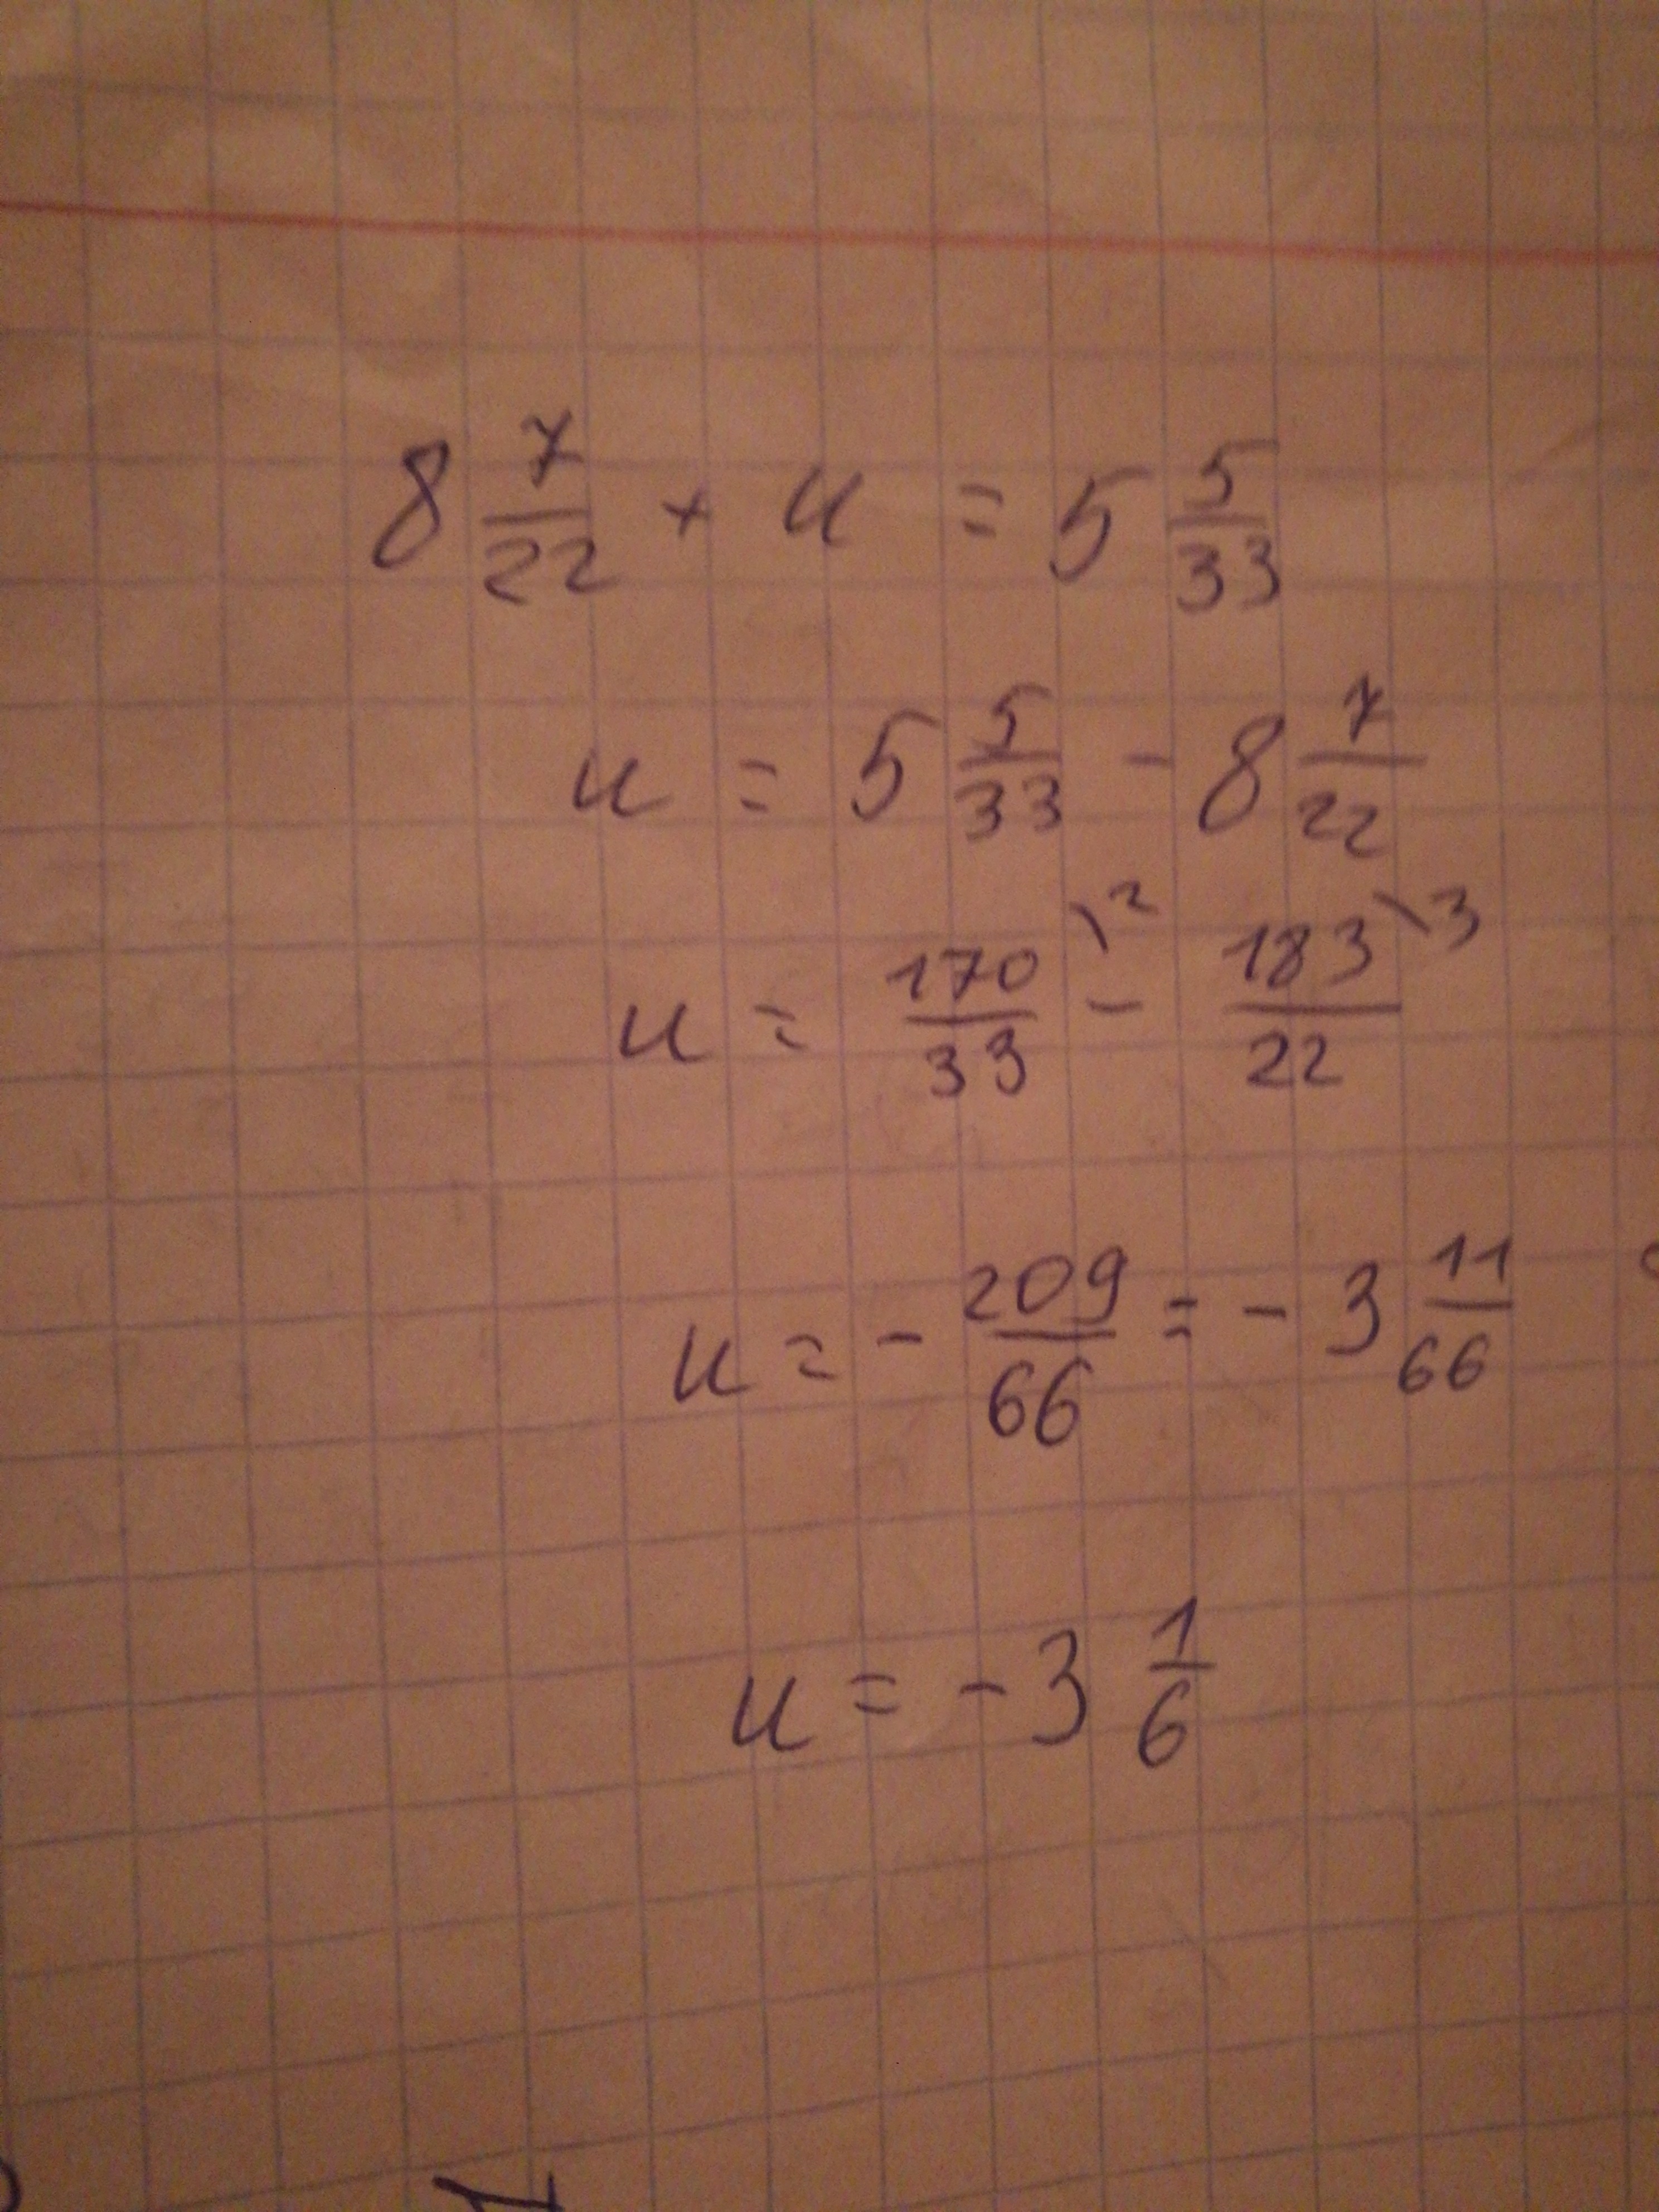 8 7/22 + u = 5 5/33
u = 5 5/33 - 8 7/22
u = 170/33 \2 - 183/22 \3
u = - 209/66 = - 3 11/66
u = - 3 1/6